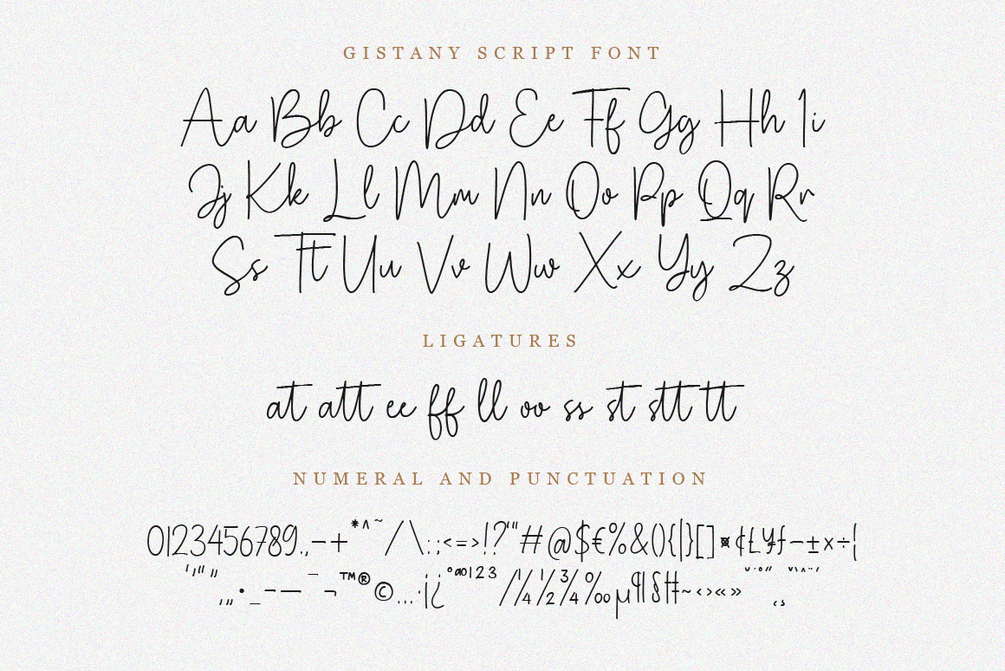 GISTANY SCRIPT FONT
Aa Bb Cc Dd Ee Ff Gg Hh Ii
Jj Kk Ll Mm Nn Oo Pp Qq Rr
Ss Tt Uu Vv Ww Xx Yy Zz
LIGATURES
at att ee ff ll oo ss st stt tt
NUMERAL AND PUNCTUATION
0123456789.,−+*^~/\:;<=>!?'"#@$€%&(){|}[]¤¢£¥ƒ−±×÷¦
‘’“”‚„•_–—¯¬™®©…·¡¿ºª0123⁄¼½¾‰µ¶§‡~‹›«»